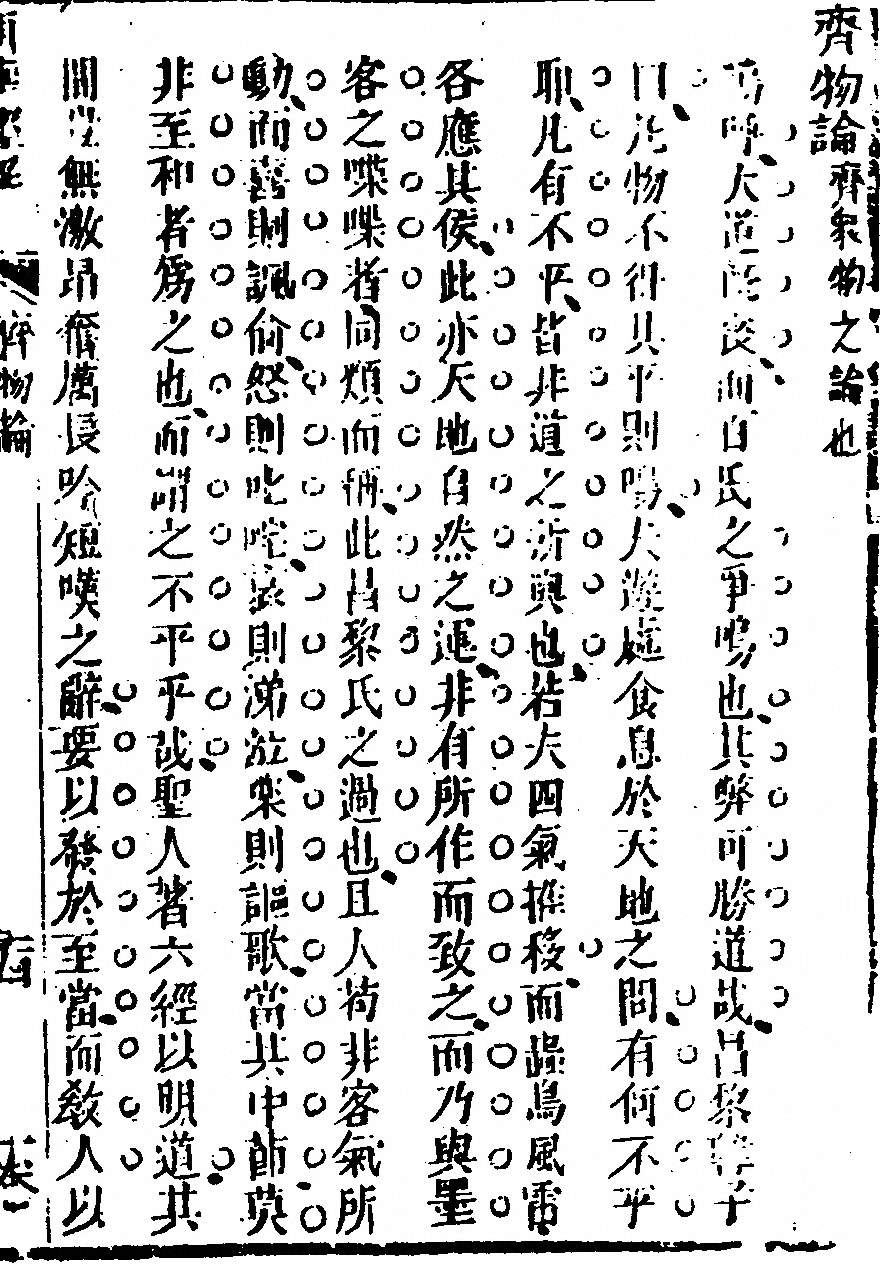 齊物論齊衆物之論也
嗚呼大道旣喪而百氏之爭鳴也其弊可勝道哉昌黎韓子
曰凡物不得其平則鳴夫遊處食息於天地之間有何不平
耶凡有不平皆非道之所與也若夫四氣推移而蟲鳥風雷
各應其侯此亦天地自然之運非有所作而致之而乃與墨
客之喋喋者同類而稱此昌黎氏之過也且人苟非客氣所
動而喜則諷侑怒則叱咤哀則涕泣樂則謳歌當其中節莫
非至和者爲之也而謂之不平乎哉聖人著六經以明道其
間豈無激昂奮厲長吟短嘆之辭要以發於至當而教人以
齊物論